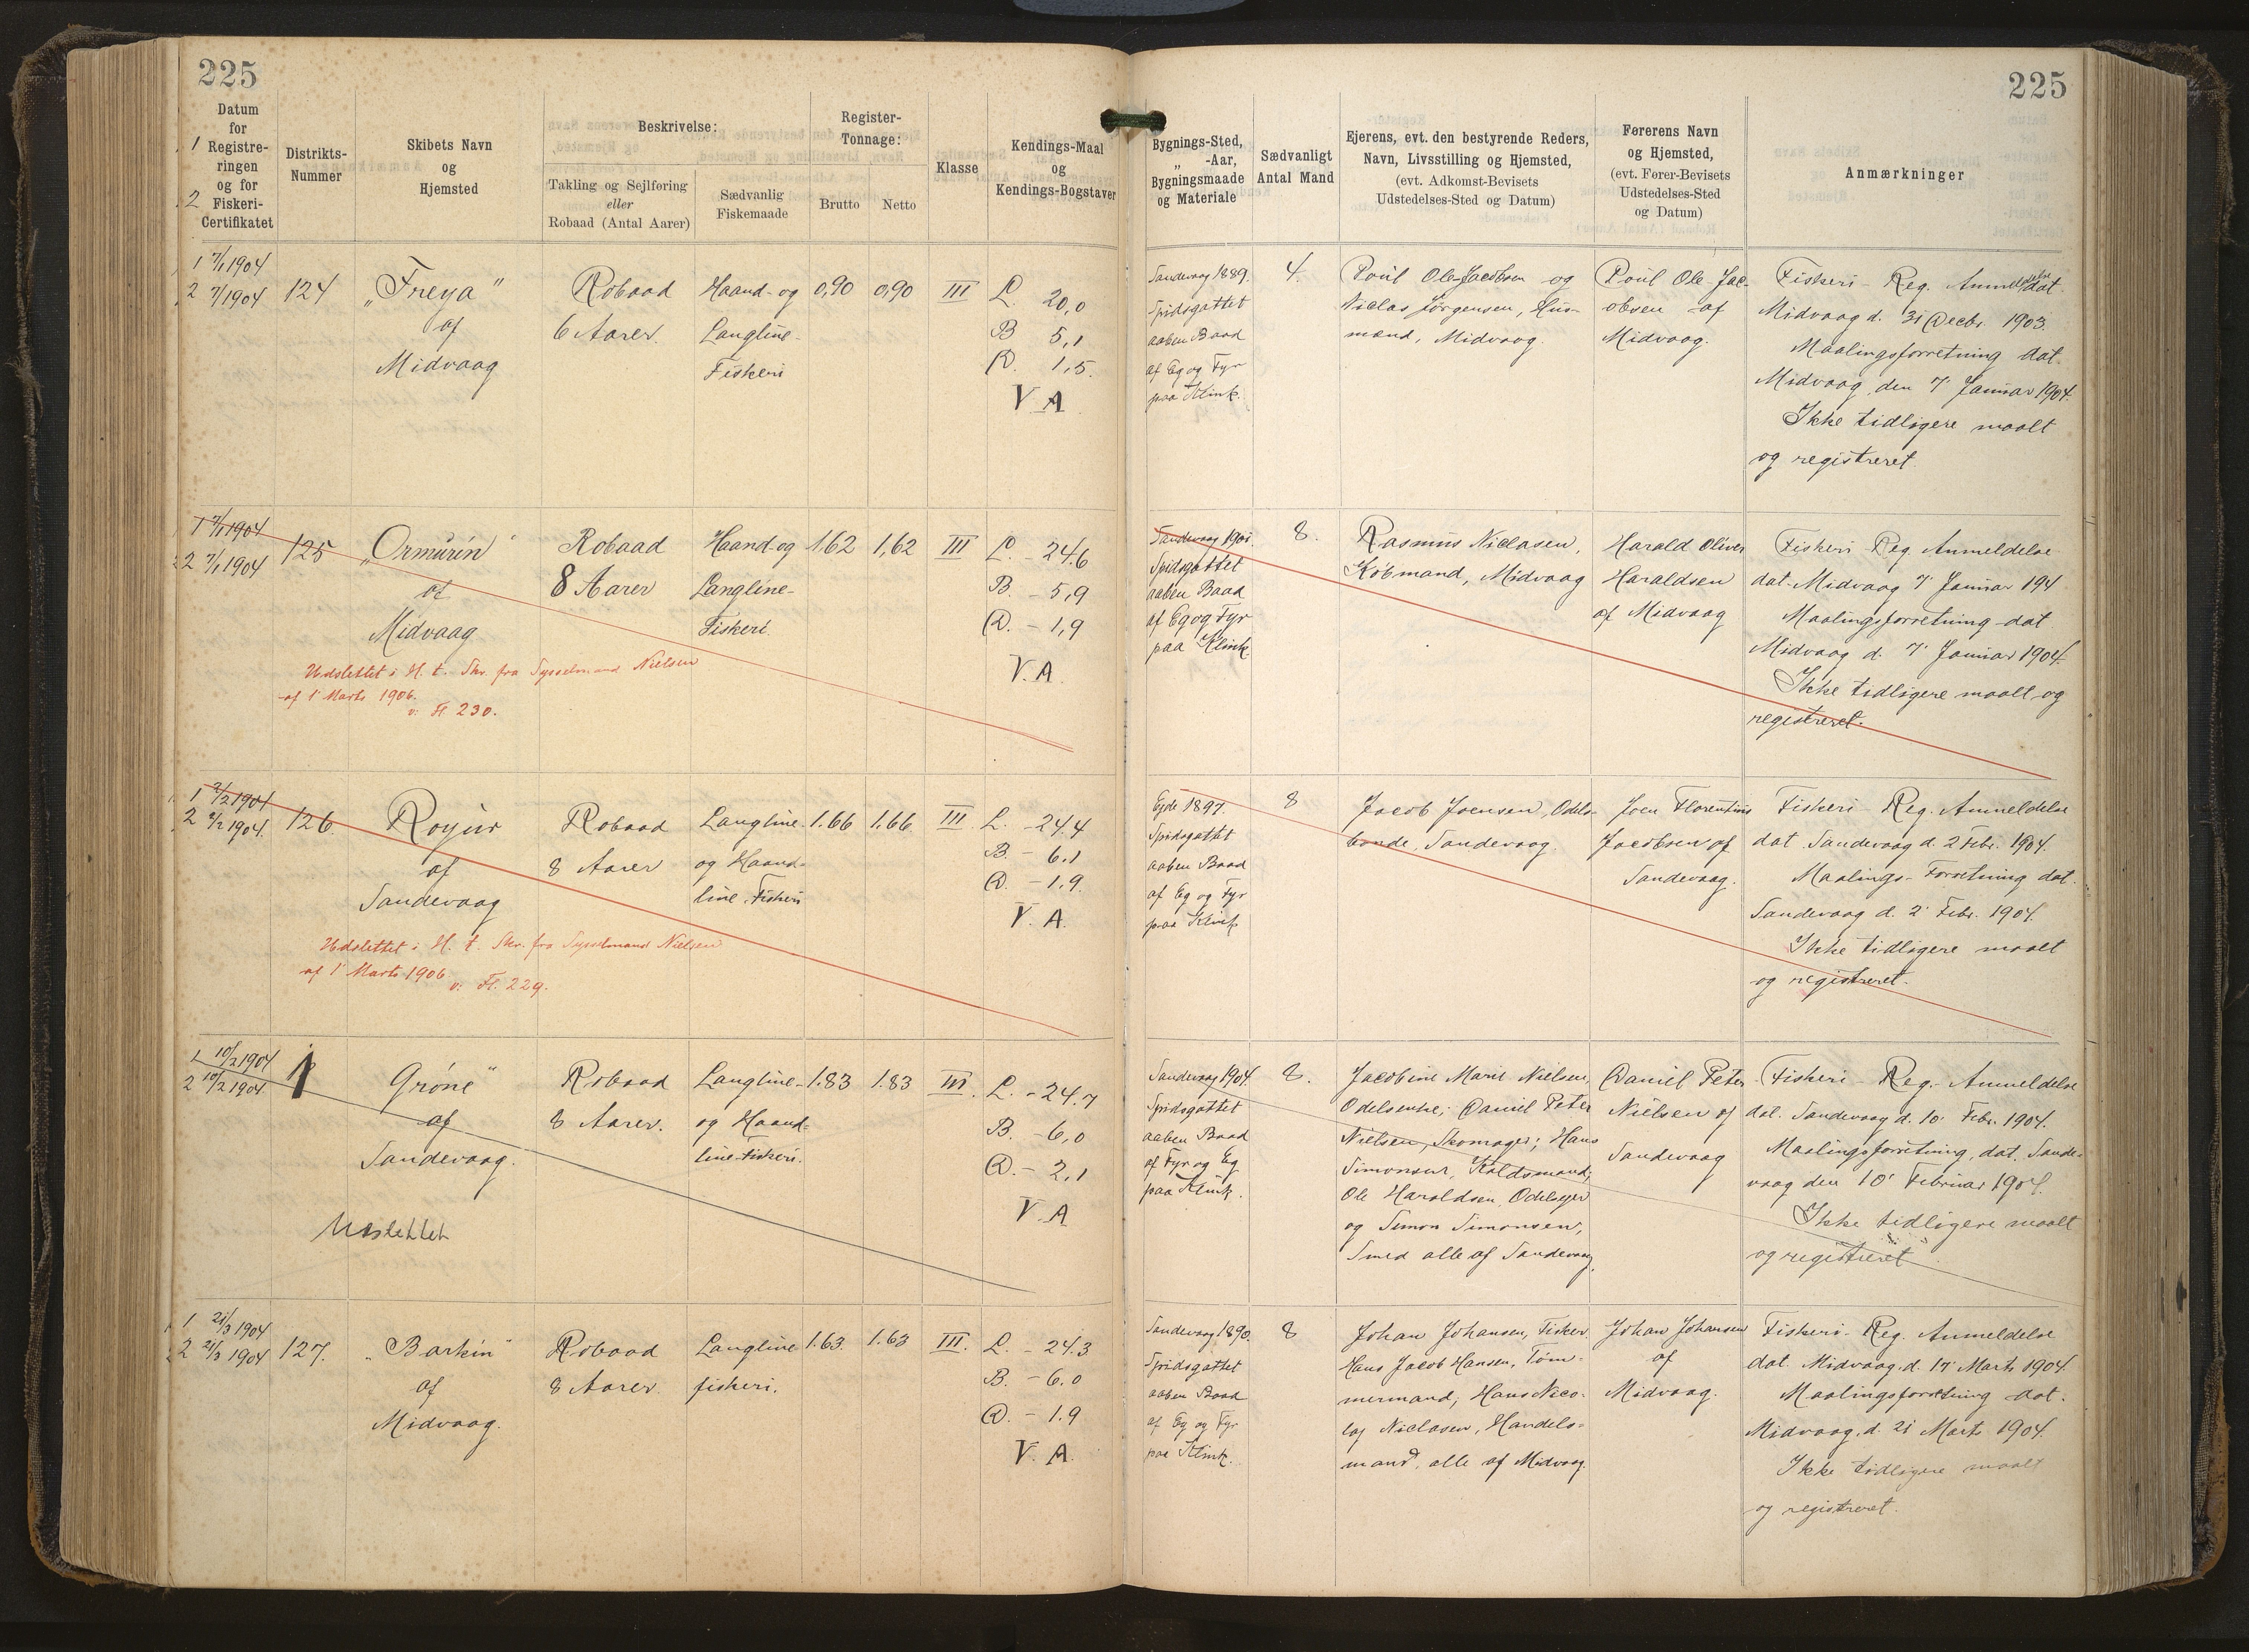 225
225
Datum
for
1 Registre-
ringen
og for
2 Fiskeri-
Certifikatet
Distrikts-
Nummer
Skibets Navn
og
Hjemsted
Beskrivelse:
Takling og Sejlføring
eller
Robaad (Antal Aarer)
Sædvanlig
Fiskemaade
Register-
Tonnage:
Brutto
Netto
Klasse
Kendings-Maal
og
Kendings-Bogstaver
Bygnings-Sted,
„ -Aar,
Bygningsmaade
og Materiale
Sædvanligt
Antal Mand
Ejerens, evt. den bestyrende Reders,
Navn, Livsstilling og Hjemsted,
(evt. Adkomst-Bevisets
Udstedelses-Sted og Datum)
Førerens Navn
og Hjemsted,
(evt. Fører-Bevisets
Udstedelses-Sted
og Datum)
Anmærkninger
1 7/1 1904
2 7/1 1904
124
„Freya"
af
Midvaag
Robaad
6 Aarer.
Haand- og
Langline-
Fiskeri
0,90
0,90
III
L. 20,0
B 5,1
D. 1,5.
V A
Sandevaag 1889.
Spidsgattet
aaben Baad
af Eg og Fyr
paa Klink.
4.
Poul Ole Jacobsen og
Niclas Jørgensen, Hus-
mænd, Midvaag.
Poul Ole Jac-
obsen af
Midvaag.
Fiskeri - Reg. Anmeldelse dat.
Midvaag d. 31 Decbr. 1903.
Maalingsforretning dat.
Midvaag, den 7' Januar 1904.
Ikke tidligere maalt
og registreret.
1 7/1 1904
2 7/1 1904
125
„Ormurin"
af
Midvaag
Robaad
8 Aarer
Haand-og
Langline-
Fiskeri.
1,62
1,62
III
L. - 24.6
B. - 5,9
D. - 1,9
V. A.
Udslettet i H. t. Skr. fra Sysselmand Nielsen
af 1' Marts 1906.
v. Fl. 230.
Sandevaag 1901.
Spidsgattet
aaben Baad
af Eg og Fyr
paa Klink.
8.
Rasmus Niclasen,
Købmand, Midvaag
Harald Oliver
Haraldsen
af Midvaag
Fiskeri - Reg. Anmeldelse
dat. Midvaag 7' Januar 194
Maalingsforretning dat
Midvaag d. 7' Januar 1904.
Ikke tidligere maalt og
registreret.
1 2/2 1904
2 2/2 1904.
126.
Royur
af
Sandevaag
Robaad
8 Aarer
Langline-
og Haand-
line-Fiskeri
1.66
1.66
III.
L. - 24.4
B. - 6.1
D. - 1.9.
V. A.
Udslettet i H. t. Skr. fra Sysselmand Nielsen
af 1' Marts 1906.
v. Fl. 229.
Ejde 1897.
Spidsgattet
aaben Baad
af Eg og Fyr
paa Klink
8
Jacob Joensen, Odels-
bonde, Sandevaag.
Joen Florentius
Jacobsen af
Sandevaag.
Fiskeri - Reg. Anmeldelse
dat. Sandevaag d. 2 Febr. 1904.
Maalings-Forretning dat.
Sandevaag d. 2' Febr. 1904.
Ikke tidligere maalt
og registreret.
1 10/2 1904
2 10/2 1904.
1
Grøne"
af
Sandevaag.
Robaad
8 Aarer.
Langline-
og Haand-
line-Fiskeri.
1.83
1.83
III.
L. - 24.7
B. - 6,0
D. - 2,1
V. A
Udslettet
Sandevaag 1904.
Spidsgattet
aaben Baad
af Fyr og Eg
paa Klink.
8.
Jacobine Marie Nielsen,
Odelsenke; Daniel Peter
Nielsen, Skomager; Hans
Simonsen, Koldsmand;
Ole Haraldsen, Odelsejer
og Simon Simonsen,
Smed alle af Sandevaag.
Daniel Peter
Nielsen af
Sandevaag
Fiskeri - Reg. - Anmeldelse
dat. Sandevaag d. 10 Febr. 1904.
Maalingsforretning, dat. Sande-
vaag den 10' Februar 1904.
Ikke tidligere maalt
og registreret
1 21/3 1904
2 21/3 1904
127.
„Barkin"
af
Midvaag.
Robaad
8 Aarer.
Langline
fiskeri.
1.63.
1.63
III.
L. - 24.3
B. - 6.0
D. - 1.9
V. A.
Sandevaag 1890.
Spidsgattet
aaben Baad
af Eg og Fyr
paa Klink.
8
Johan Johansen, Fisker.
Hans Jacob Hansen, Tøm-
mermand; Hans Nico-
laj Niclasen, Handels-
mand, alle af Midvaag.
Johan Johansen
af
Midvaag.
Fiskeri - Reg. Anmeldelse
dat. Midvaag, d. 17' Marts 1904.
Maalingsforretning dat.
Midvaag, d. 21 Marts 1904.
Ikke tidligere maalt
og registreret.